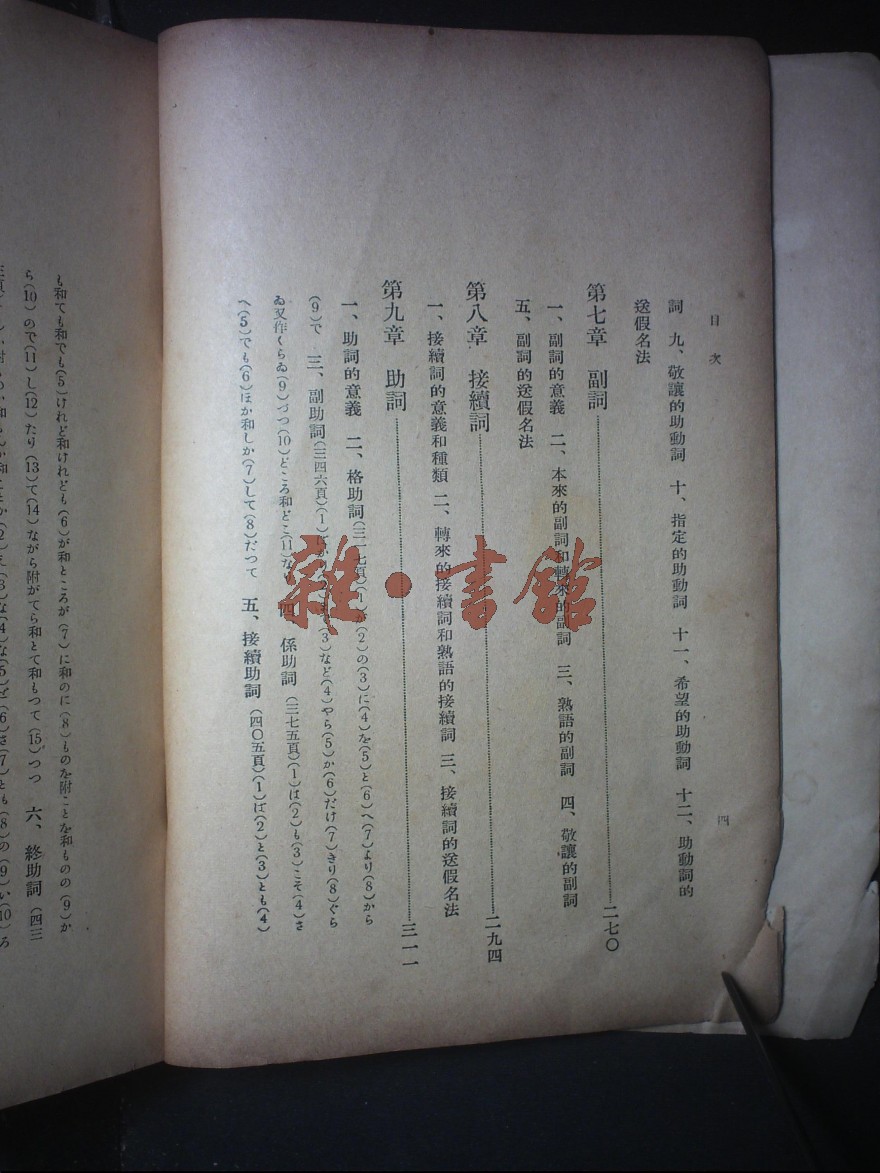 目次
四
詞 九、敬讓的助動詞 十、指定的助動詞 十一、希望的助動詞 十二、助動詞的
送假名法
第七章 副詞……二七〇
一、副詞的意義 二、本來的副詞和轉來的副詞 三、熟語的副詞 四、敬讓的副詞
五、副詞的送假名法
第八章 接續詞……二九四
一、接續詞的意義和種類 二、轉來的接續詞和熟語的接續詞 三、接續詞的送假名法
第九章 助詞……三一一
一、助詞的意義 二、格助詞(三一七頁)(1)が(2)の(3)に(4)を(5)と(6)へ(7)より(8)から
(9)で 三、副助詞(三四六頁)(1)(3)など(4)やら(5)か(6)だけ(7)きり(8)ぐら
ゐ又作くらゐ(9)づつ(10)どころ和どこ(11)な 四、係助詞(三七五頁)(1)は(2)も(3)こそ(4)さ
へ(5)でも(6)ほか和しか(7)して(8)だつて 五、接續助詞(四〇五頁)(1)ば(2)と(3)とも(4)
も和ても和でも(5)けれど和けれども(6)が和ところが(7)に和のに(8)ものを附ことを和ものの(9)か
ら(10)ので(11)し(12)たり(13)て(14)ながら附がてら和とて和もつて(15)つつ 六、終助詞(四三
雜·書館